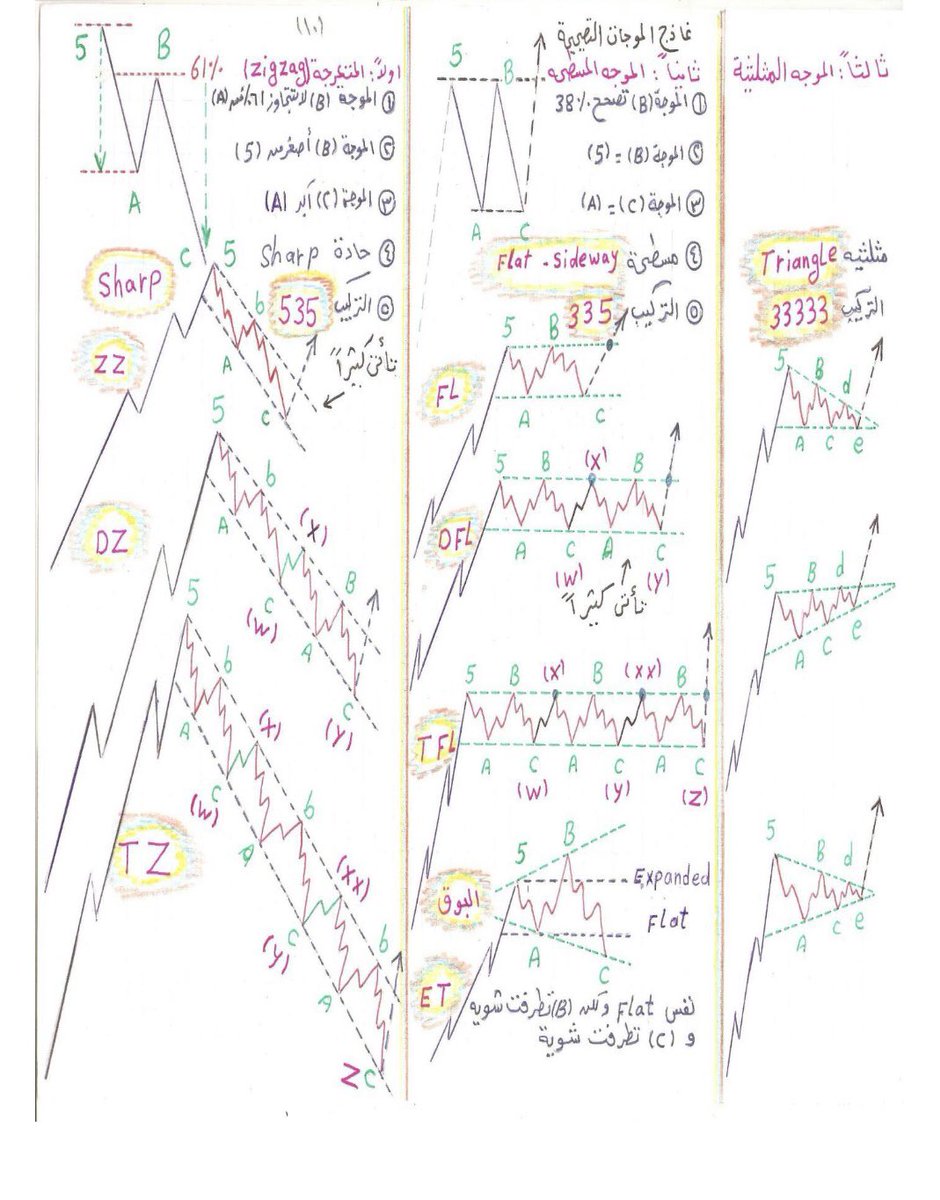 (١٠)
نماذج الموجات التصحيحية
5
B
61%
A
C
اولاً: المتعرجة (zigzag)
① الموجة (B) لا تتجاوز ٦١٪ من (A)
② الموجة (B) أصغر من (5)
③ الموجة (C) أكبر (A)
④ حادة Sharp
⑤ التركيب 535
Sharp
ZZ
5
b
A
C
تأتى كثيراً
DZ
5
b
(X)
A
C
(W)
B
A
C
(Y)
TZ
5
b
(X)
A
C
(W)
b
(XX)
C
(Y)
b
A
Z C
ثانياً: الموجه المسطحه
5
B
A
C
① الموجة (B) تصحح 38%
② الموجة (B) = (5)
③ الموجة (C) = (A)
④ مسطحة Flat - Sideway
⑤ التركيب 335
FL
5
B
A
C
DFL
5 B (X) B
A C A C
(W) (Y)
تأتى كثيراً
TFL
5 B (X) B (XX) B
A C A C A C
(W) (Y) (Z)
البوق
ET
5
B
Expanded
Flat
A
C
نفس Flat ولكن (B) تطرفت شوية
و (C) تطرفت شوية
ثالثاً: الموجه المثلثية
مثلثيه Triangle
التركيب 33333
5 B d
A C e
5 B d
A C e
5 B d
A C e